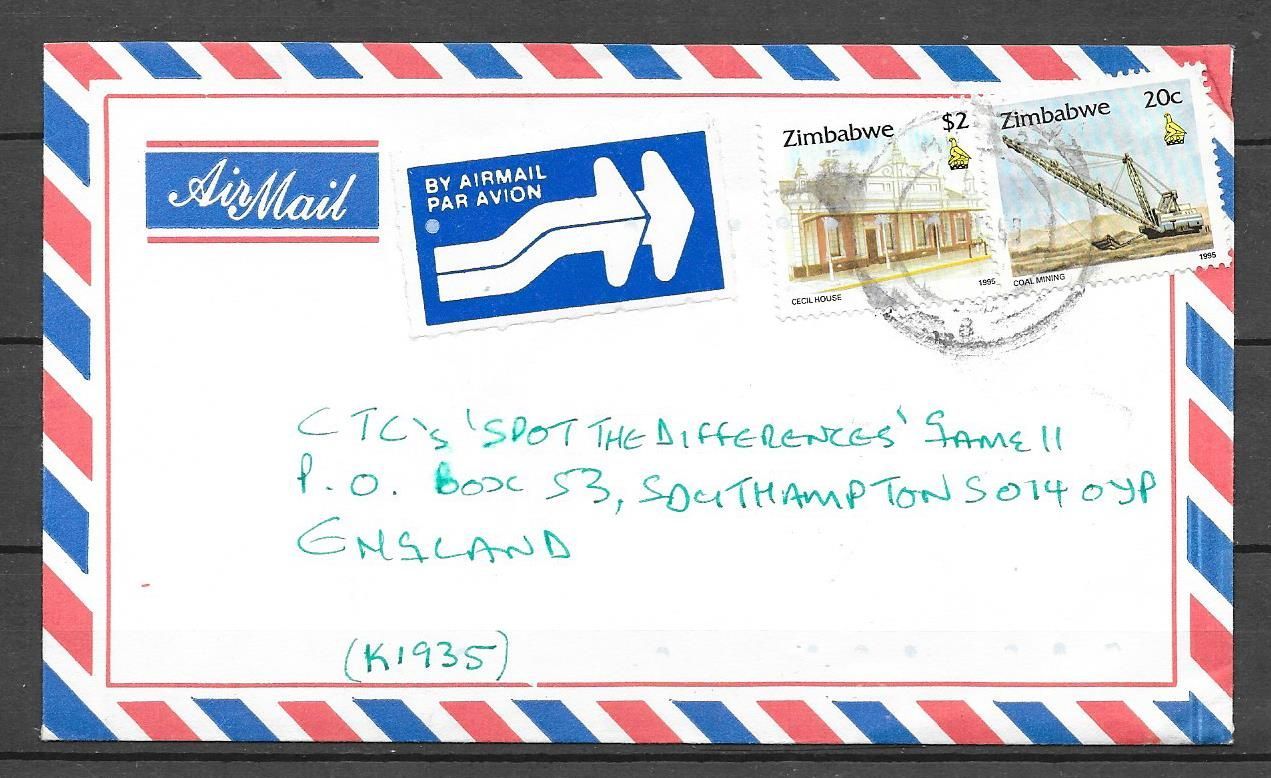 Air Mail
BY AIRMAIL
PAR AVION
Zimbabwe $2
CECIL HOUSE 1995
Zimbabwe 20c
COAL MINING 1995
CTC's 'SPOT THE DIFFERENCES' GAME 11
P.O. BOX 53, SOUTHAMPTON SO14 0YP
ENGLAND
(K1935)